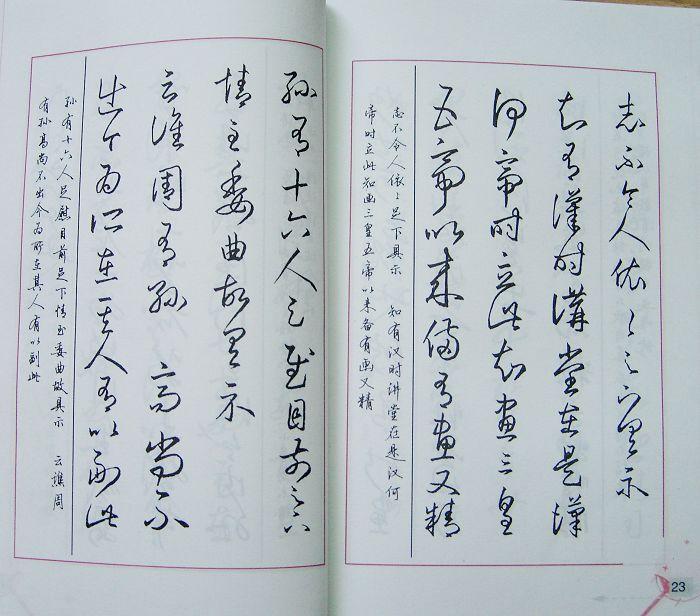 志不令人依ゝ足下具示
知有漢时講堂在是漢
何帝时立此知畫三皇
五帝以来備有畫又精
志不令人依ゝ足下具示 知有汉时讲堂在是汉何
帝时立此知画三皇五帝以来备有画又精
23
孫有十六人足慰目前足下
情至委曲故具示
云譙周有孫 高尚不
出今为所在其人有以副此
孙有十六人足慰目前足下情至委曲故具示 云谯周
有孙高尚不出今为所在其人有以副此